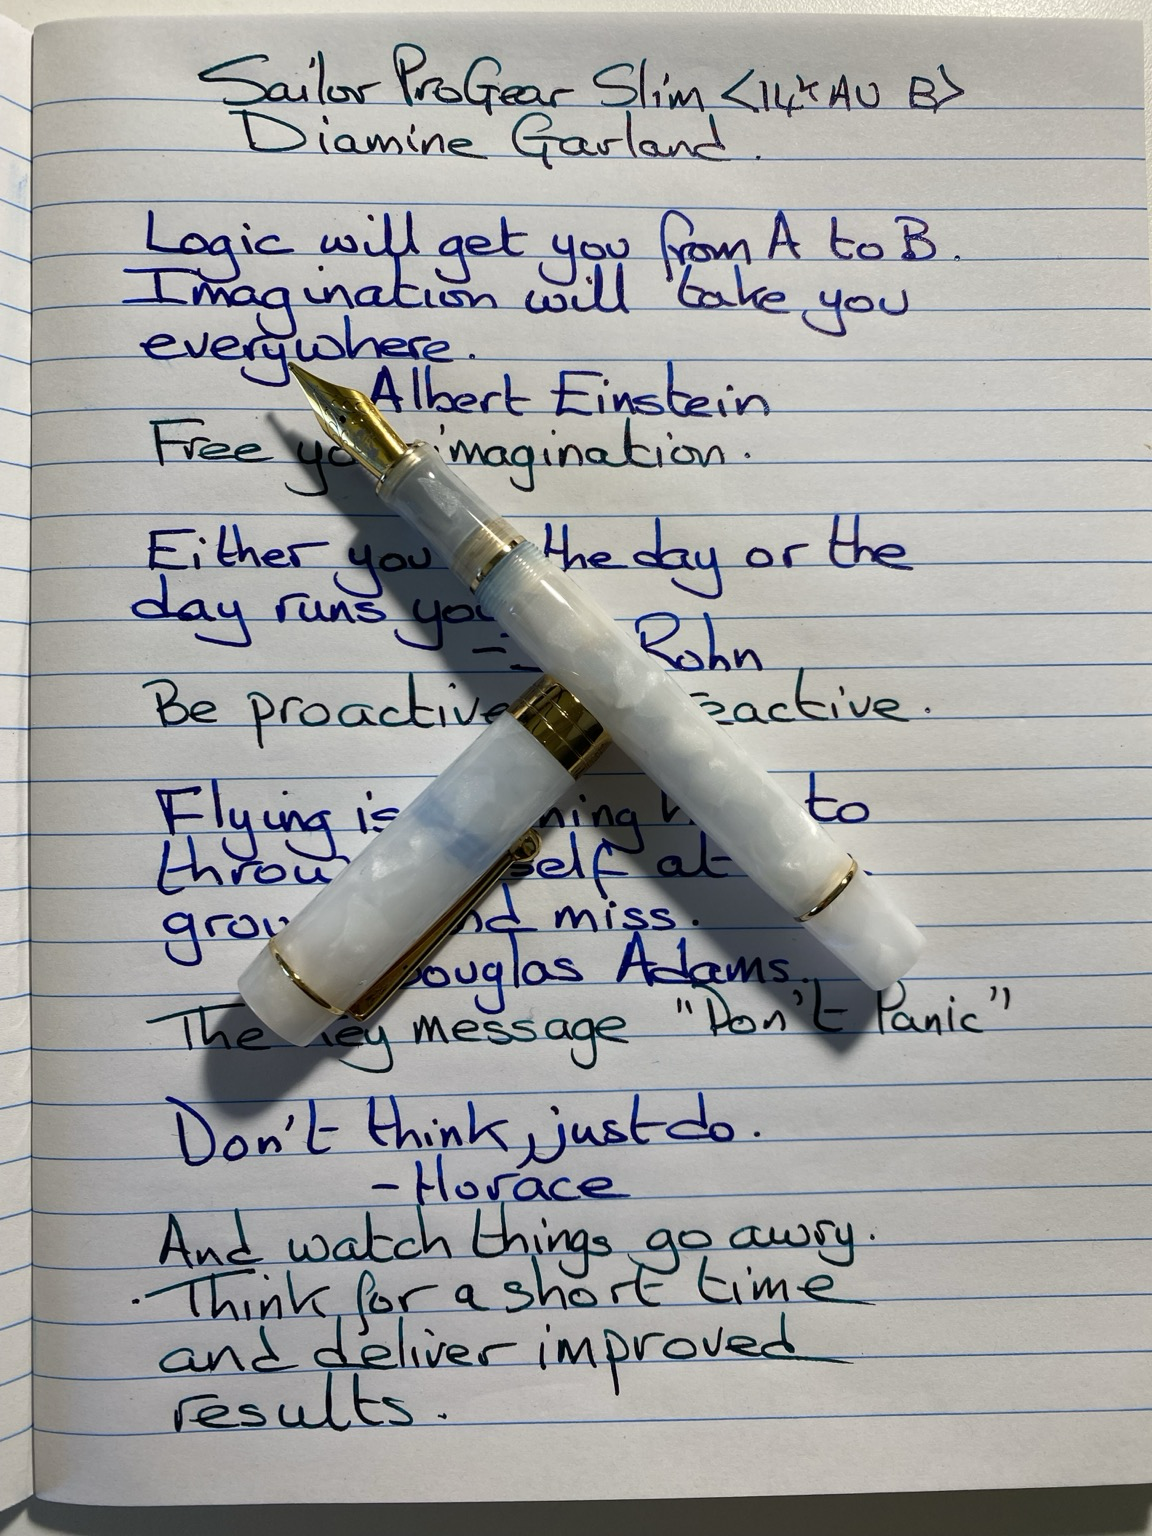 Sailor ProGear Slim <14k AU B>
Diamine Garland.
Logic will get you from A to B.
Imagination will take you
everywhere.
Albert Einstein
Free imagination.
Either you the day or the
day runs you
Rohn
Be proactive
Flying is to
at
miss.
Douglas Adams.
The key message "Don't Panic"
Don't think, just do.
- Horace
And watch things go awry.
. Think for a short time
and deliver improved
results.